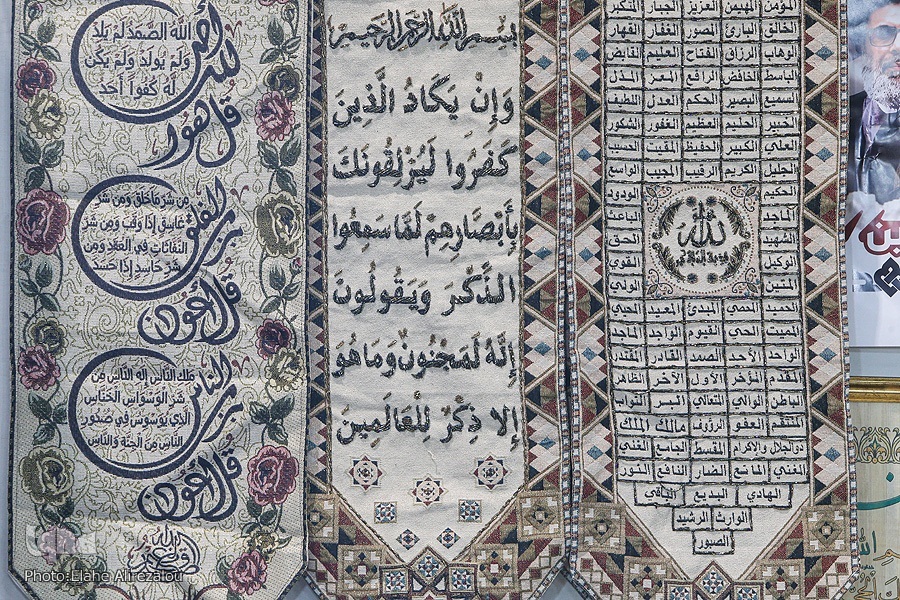 الله الصمد لم يلد
ولم يولد ولم يكن
له كفوا أحد
قل هو
من شر ما خلق ومن شر
غاسق إذا وقب ومن شر
النفاثات في العقد ومن
شر حاسد إذا حسد
برب الفلق
قل أعوذ
ملك الناس إله الناس من
شر الوسواس الخناس
الذي يوسوس في صدور
الناس من الجنة والناس
برب الناس
قل أعوذ
بسم الله الرحمن الرحيم
وَإِنْ يَكَادُ الَّذِينَ
كَفَرُوا لَيُزْلِقُونَكَ
بِأَبْصَارِهِمْ لَمَّا سَمِعُوا
الذِّكْرَ وَيَقُولُونَ
إِنَّهُ لَمَجْنُونٌ وَمَا هُوَ
إِلا ذِكْرٌ لِلْعَالَمِينَ
المؤمن المهيمن العزيز الجبار المتكبر
الخالق البارئ المصور الغفار القهار
الوهاب الرزاق الفتاح العليم القابض
الباسط الخافض الرافع المعز المذل
السميع البصير الحكم العدل اللطيف
الخبير الحليم العظيم الغفور الشكور
العلي الكبير الحفيظ المقيت الحسيب
الجليل الكريم الرقيب المجيب الواسع
الحكيم الودود
الماجد الباعث
الشهيد الحق
الوكيل القوي
المتين الولي
الله
المبدئ المعيد المحيي
المميت الحي القيوم الواجد الماجد
الواحد الأحد الصمد القادر المقتدر
المقدم المؤخر الأول الآخر الظاهر
الباطن الوالي المتعالي البر التواب
المنتقم العفو الرؤوف مالك الملك
ذو الجلال والإكرام المقسط الجامع الغني
المغني المانع الضار النافع النور
الهادي البديع الباقي
الوارث الرشيد
الصبور
Photo:Elahe Alirezalou